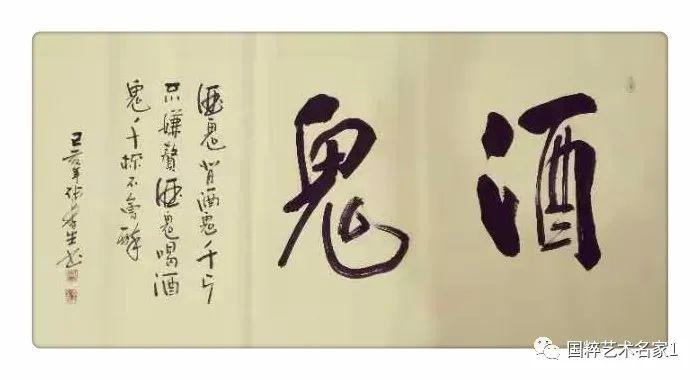 酒鬼
酒鬼背酒鬼千斤
不嫌赘酒鬼喝酒
鬼千杯不会醉
己亥年 书
国粹艺术名家1